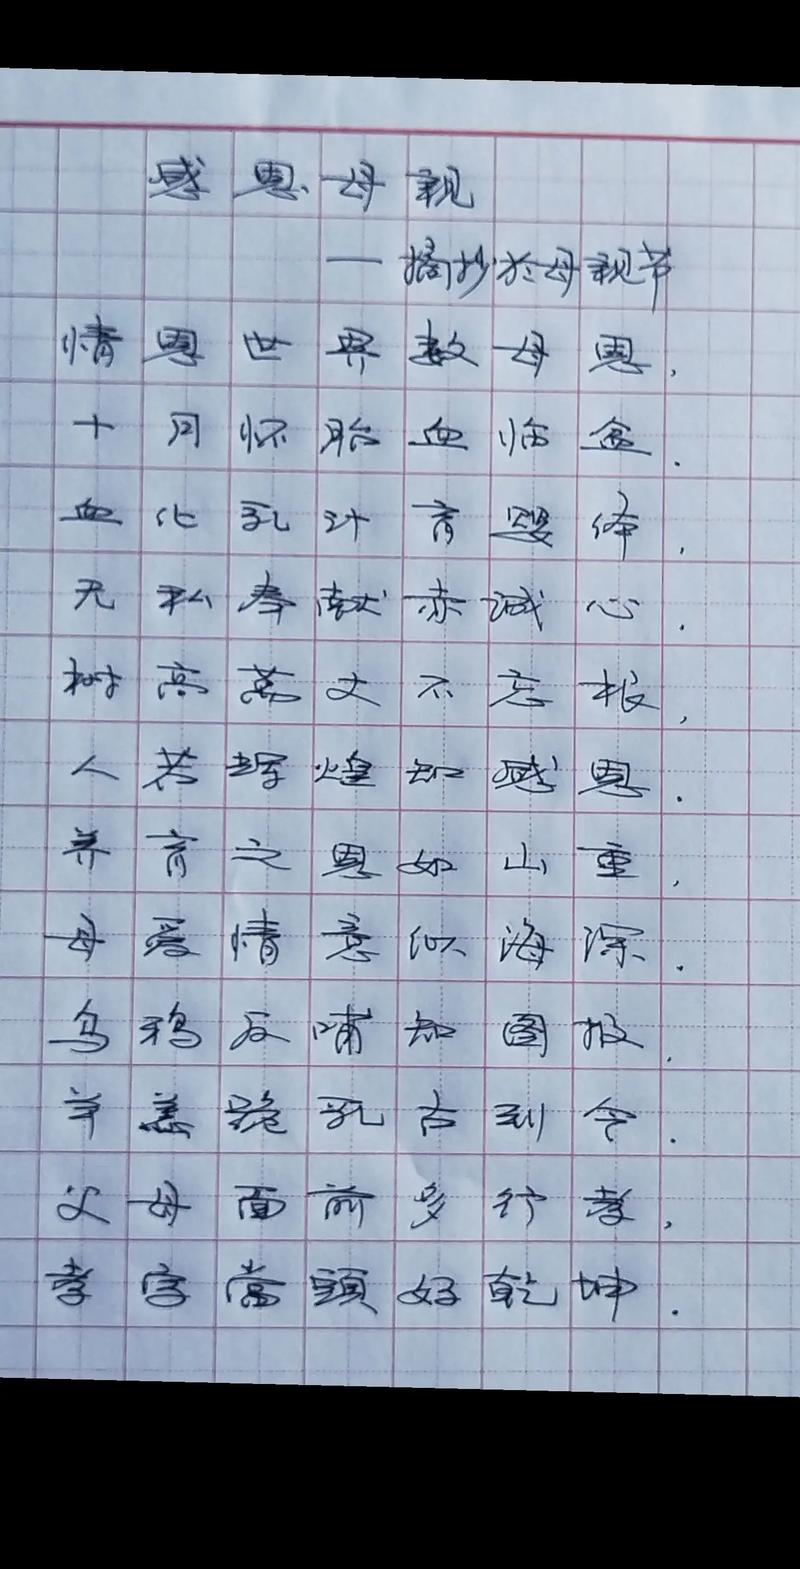 感恩母親
一摘抄於母親节
情恩世界数母恩，
十月怀胎血临盆．
血化乳汁育婴体，
无私奉献赤诚心．
树高萬丈不忘根，
人若辉煌知感恩．
养育之恩如山重，
母爱情意似海深．
乌鸦反哺知图报，
羊羔跪乳古到今．
父母面前多行孝，
孝字當頭好乾坤．